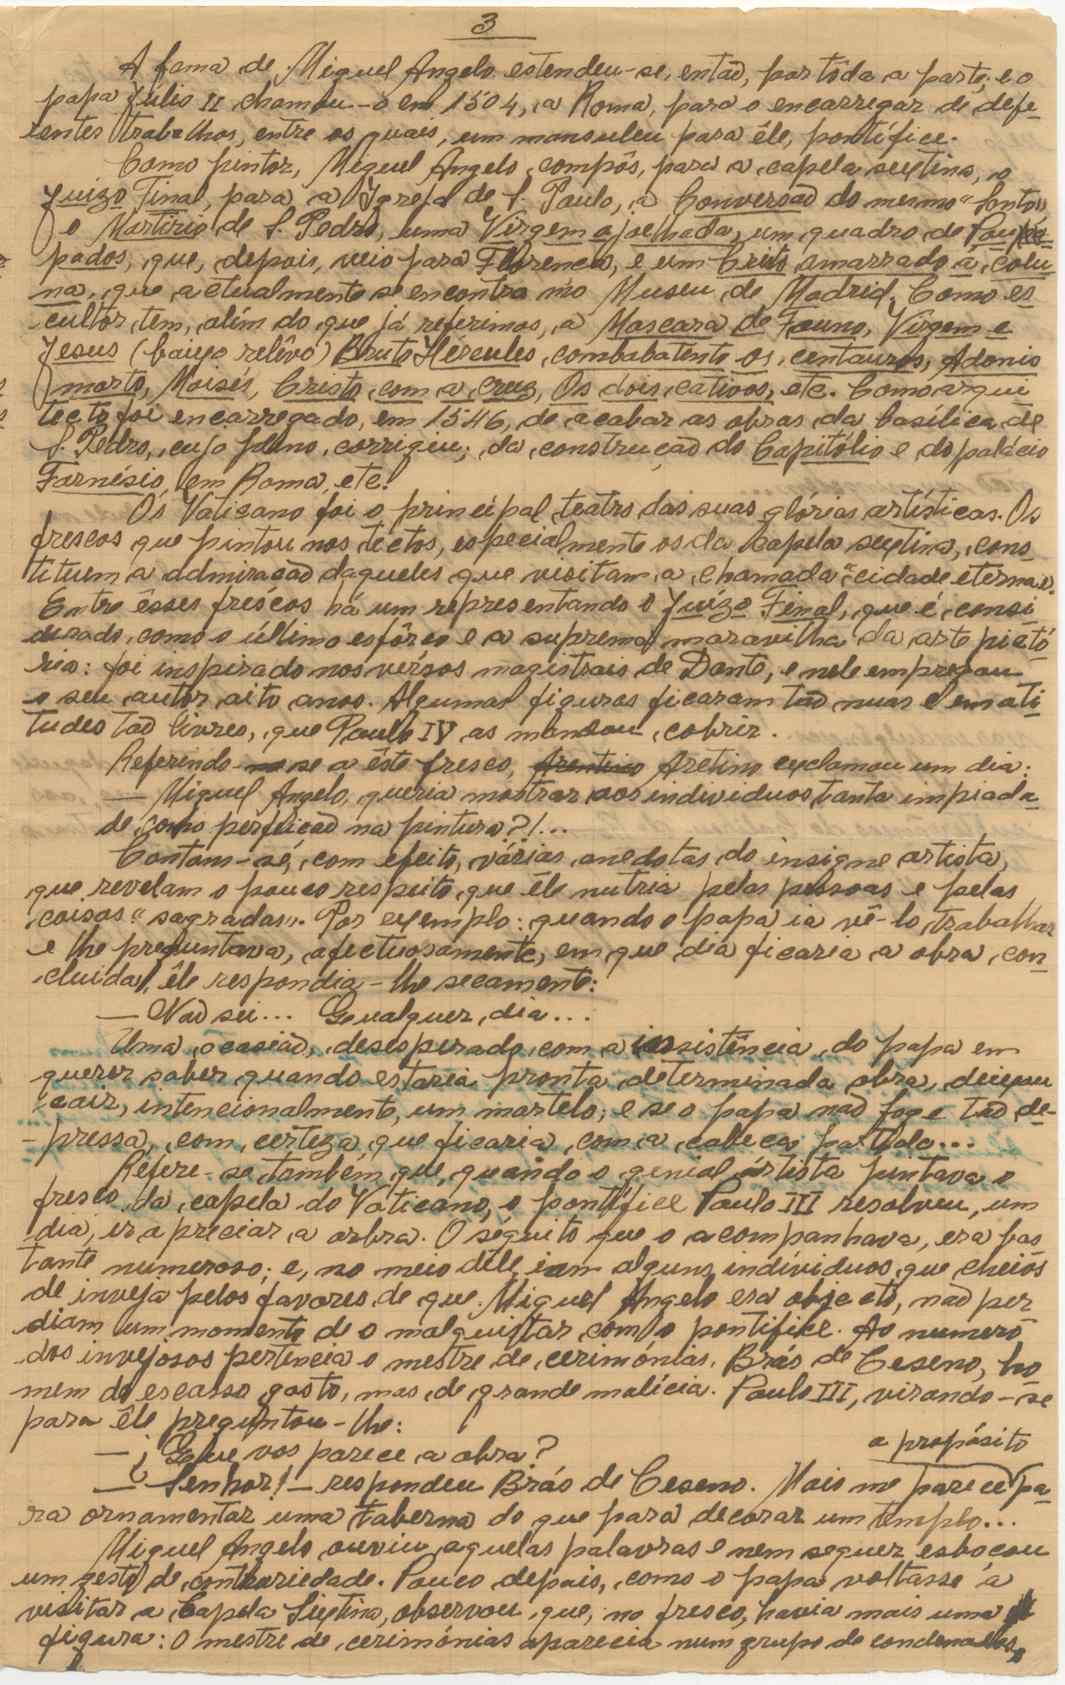 3
A fama de Miguel Angelo estendeu-se, então, por tôda a parte, e o
papa Júlio II chamou-o em 1504, a Roma, para o encarregar de dife-
rentes trabalhos, entre os quais, um mausuleu para êle, pontífice.
Como pintor, Miguel Angelo compôs, para a capela sextina, o
Juizo Final, para a Igreja de S. Paulo, a Conversão do mesmo "Santo",
o Martirio de S. Pedro, uma Virgem ajoelhada, um quadro de
pados, que, depois, veio para Florença, e um Cristo amarrado à colu-
na, que actualmente se encontra no Museu de Madrid. Como es-
cultor, tem, além do que já referimos, a Mascara de Fauno, Virgem e
Jesus (baixo relêvo) Bruto Hércules combabatento os centauros, Adonis
morto, Moisés, Cristo com a cruz, Os dois cativos, etc. Como arqui
tecto foi encarregado, em 1546, de acabar as obras da basílica de
S. Pedro, cujo plano corrigiu; da construção do Capitólio e do palácio
Farnésio, em Roma, etc.
Os Vaticano foi o principal teatro das suas glórias artísticas. Os
frescos que pintou nos tectos, especialmente os da Capela sextina, cons
tituem a admiração daqueles que visitam a chamada "cidade eterna".
Entre êsses frescos há um representando o Juízo Final, que é consi
derado, como o último esfôrço e a suprema maravilha da arte pictó
rica: foi inspirado nos versos magistrais de Dante, e nele empregou
o seu autor oito anos. Algumas figuras ficaram tão nuas e em ati-
tudes tão livres, que Paulo IV as mandou cobrir.
Referindo-se a êste fresco, Arentino Aretino exclamou um dia:
— Miguel Angelo queria mostrar aos individuos tanta impieda-
de como perfeição na pintura?!...
Contam-se, com efeito, várias anedotas do insigne artista,
que revelam o pouco respeito que êle nutria pelas pessoas e pelas
coisas "sagradas". Por exemplo: quando o papa ia vê-lo trabalhar
e lhe preguntava, afectuosamente, em que dia ficaria a obra con-
cluida, êle respondia-lhe secamente:
— Não sei... Qualquer dia...
Uma ocasião, desesperado com a insistência do papa em
querer saber quando estaria pronta determinada obra, deixou
cair, intencionalmente, um martelo, e se o papa não foge tão de-
-pressa, com certeza que ficaria com a cabeça partida...
Refere-se também que, quando o genial artista pintava o
fresco da capela do Vaticano, o pontífice Paulo III resolveu, um
dia, ir apreciar a orbra. O séquito que o acompanhava, era bas
tante numeroso; e, no meio dêle iam alguns indivíduos que cheios
de inveja pelos favores de que Miguel Angelo era objecto, não per
diam um momento de o malquistar com o pontifice. Ao numero
dos invejosos pertencia o mestre de cerimónias, Brás de Ceseno, ho
mem de escasso gosto, mas de grande malícia. Paulo III, virando-se
para êle preguntou-lhe:
— ¿Que vos parece a obra?
a propósito
— Senhor! — respondeu Brás de Ceseno. Mais me parece pa-
ra ornamentar uma taberna do que para decorar um templo...
Miguel Angelo ouviu aquelas palavras e nem sequer esboçou
um gesto de contrariedade. Pouco depois, como o papa voltasse a
visitar a Capela Sixtina, observou que, no fresco, havia mais uma
figura: O mestre de cerimónias aparecia num grupo de condenados,